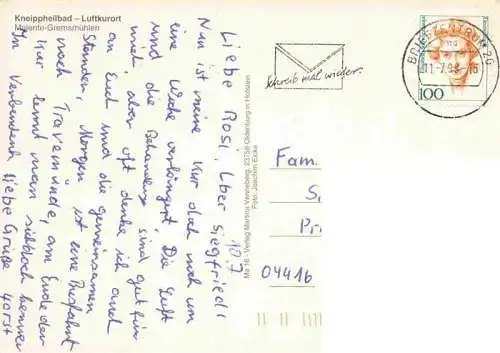 Kneippheilbad – Luftkurort
Malente-Gremsmühlen
Liebe Rosi, lber Siegfried!
10.7.
Nun ist meine Kur doch noch um
eine Woche verlängert. Die Luft
und die Behandlung sind gut für
mich, aber oft denke ich auch
an Euch und die gemeinsamen
Stunden. Morgen ist eine Busfahrt
nach Travemünde, am Ende der
Kur lernt man sich doch kennen
In Verbundenh. liebe Grüße Horst
Ma 16 - Verlag Martina Venneberg, 23758 Oldenburg in Holstein
Foto: Joachim Eicke
Schreib mal wieder.
BRIEFZENTRUM 2
11.-7.
100
Fam.
S
Pr
04416